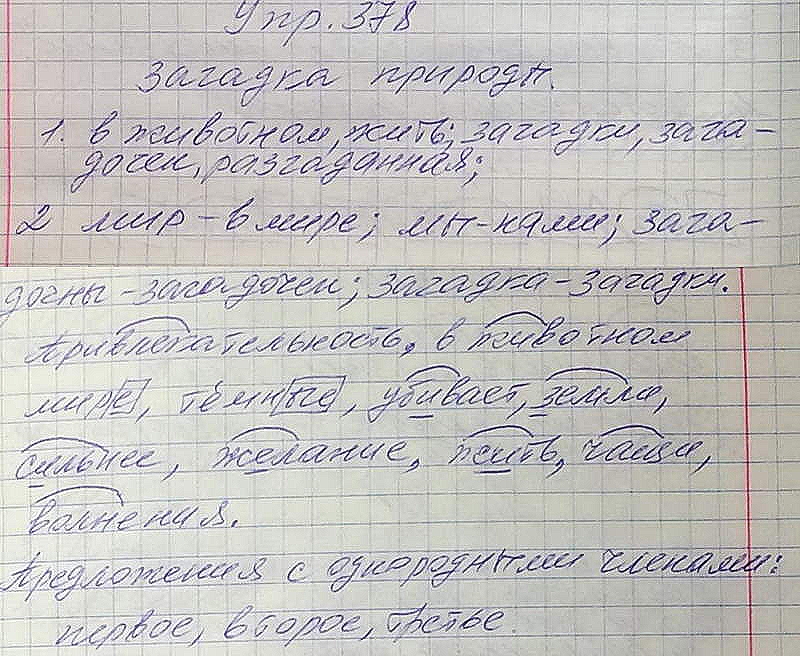 Упр. 378
Загадка природы.
1. в животном, жить; загадки, зага-
дочен, разгаданная;
2 мир - в мире; мы - нами; зага-
дочны - загадочен; загадка - загадки.
Привлекательность, в животном
мире, тёмные, убивает, земля,
сильнее, желание, жить, чащи,
волнения.
Предложения с однородными членами:
первое, второе, третье.